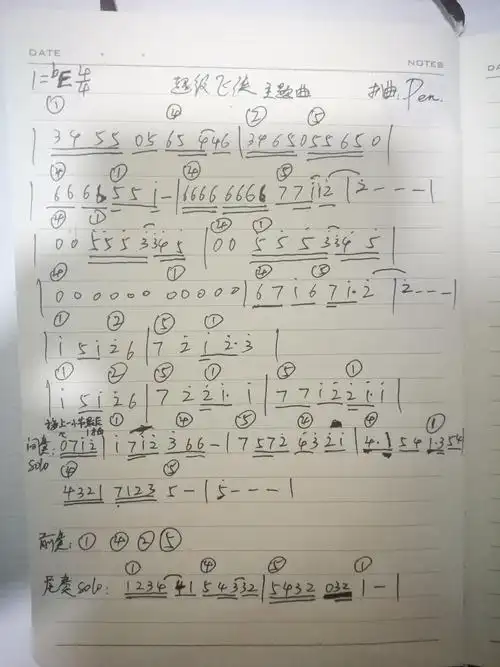 DATE NOTES
1=ᵇE 4/4 超级飞侠 主题曲 扒曲: Pen.
① ④ ② ⑤
| 3 4 5 5 0 5 6 5 4 4 6 | 3 4 6 5 0 5 5 6 5 0 |
④ ① ④ ⑤
| 6 6 6 6 5 5 i - | 6 6 6 6 6 6 6 6 7 7 i i 2̇ | 2̇ - - - |
④ ①
| 0 0 5 5 5 3 3 4 5 | 0 0 5 5 5 3 3 4 5 |
④ ① ④ ⑤
| 0 0 0 0 0 0 0 0 0 0 0 | 6 7 i 6 7 i · 2̇ | 2̇ - - - |
① ② ⑤ ①
| i 5 i 2̇ 6 | 7 2̇ i 2̇ · 3̇ |
① ② ⑤ ① ⑤ ①
| i 5 i 2̇ 6 | 7 2̇ 2̇ i · i | 7 7 i 2̇ 2̇ i · i |
① ④ ⑤ ① ④ ①
间奏 solo: 0 7 i 2̇ | i 7 i 2̇ 3 6 6 - | 7 5 7 2̇ 4̇ 3̇ 2̇ i | 4 · 1 5 4 1 · 3 5 4 |
④ ⑤
4 3 2 1 7 1 2 3 5 - | 5 - - - |
前奏: ① ④ ② ⑤
① ④ ⑤ ①
尾奏 solo: 1 2 3 4 4 1 5 4 3 3 2 | 5 4 3 2 0 3 2 1 - |